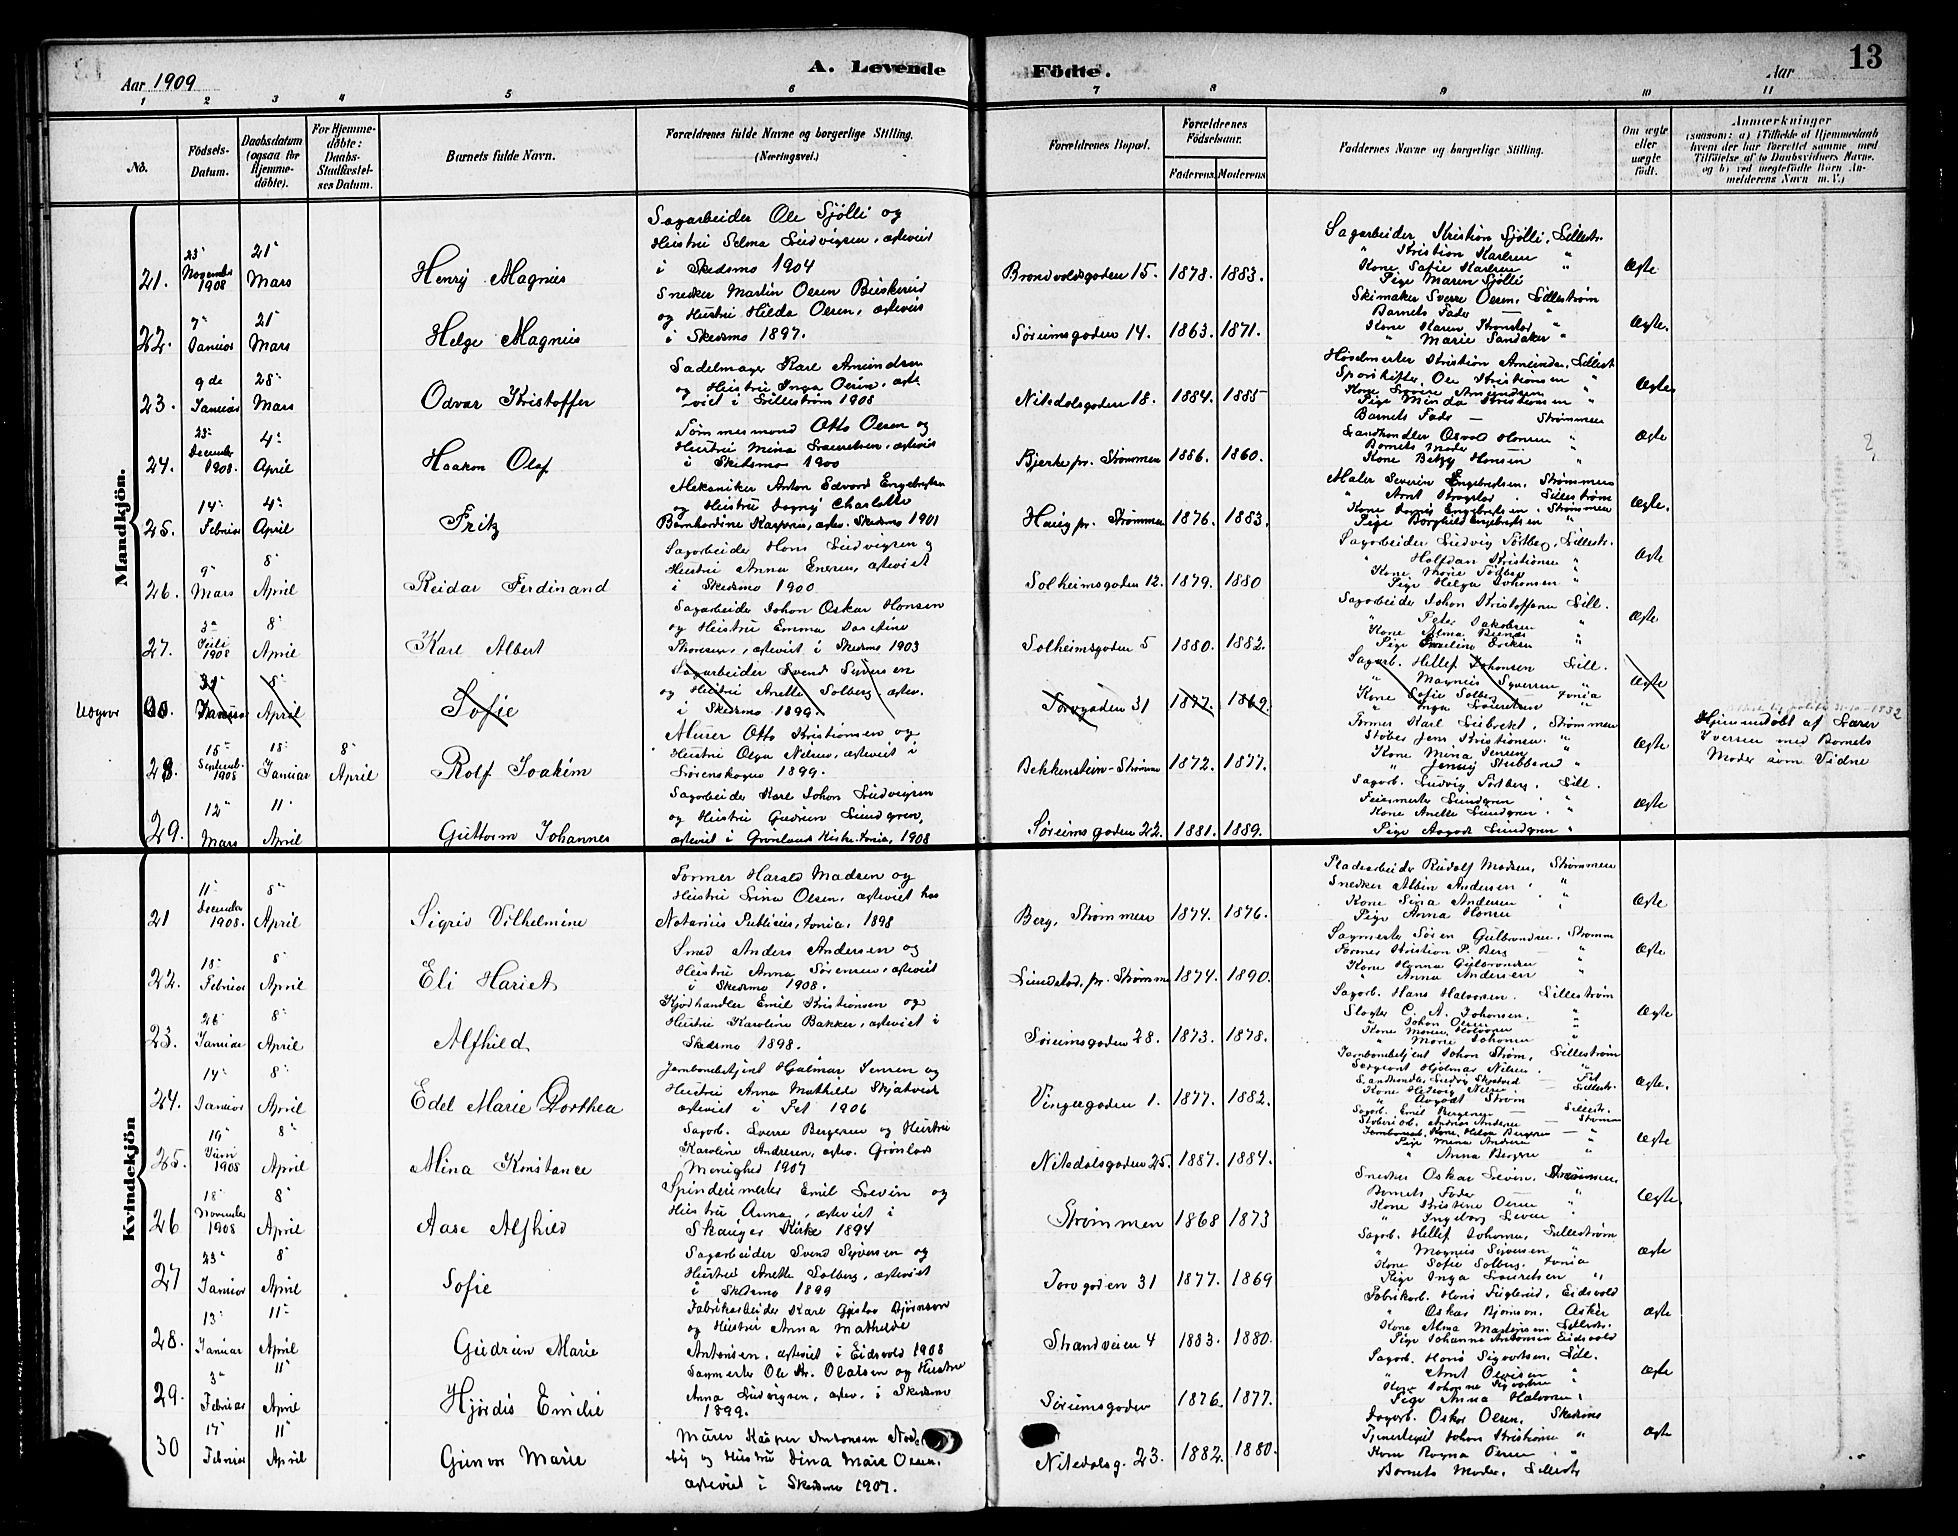 Aar 1909
A. Levende Födte.
Aar
13
1 2 3 4 5 6 7 8 9 10 11
No.
Födsels-Datum.
Daabsdatum (ogsaa for Hjemmedöbte).
For Hjemmedöbte: Daabs-Stadfæstelses Datum.
Barnets fulde Navn.
Forældrenes fulde Navne og borgerlige Stilling. (Næringsvei.)
Forældrenes Bopæl.
Forældrenes Födselsaar.
Faderens. Moderens.
Faddernes Navne og borgerlige Stilling.
Om ægte eller uægte födt.
Anmærkninger
(saasom: a) i Tilfælde af Hjemmedaab hvem der har forrettet samme, med Tilföielse af to Daabsvidners Navne, og b) ved uegtefödte Börn Anmelderens Navn m. V.)
Mandkjön.
21. 23 November 1908 21 Mars Henry Magnus
Sagarbeider Ole Sjölli og
Hustru Selma Ludvigsen, ægteviet
i Skedsmo 1904
15. 1878. 1883.
Sagarbeider Kristian Sjölli, Lillestr.
Kristian Karlsen
Kone Sofie Karlsen
Pige Maren Sjölli
Ægte
22. 7 Januar 21 Mars Helge Magnus
Snedker Martin Olsen Buskerud
og Hustru Hilda Olsen, ægteviet
i Skedsmo 1897.
Sørumsgaden 14. 1863. 1871.
Skimaker Sverre Olsen, Lilleström
Barnets Fader
Kone Karen
Marie Sandaker
Ægte.
23. 9de Januar 28 Mars Odvar Kristoffer
Sadelmager Karl Amundsen
og Hustru Inga Olsen, ægte
viet i Lilleström 1908
Nitedalsgaden 18. 1884. 1885
Kristian Amundsen, Lillest
Ole Kristiansen
Kone Amundsen
Pige Minda Kristiansen
Ægte
24. 23 December 1908. 4 April Haakon Olaf
Tömmermand Otto Olsen og
Hustru Mina Lauretsen, ægteviet
i Skedsmo 1900
Bjerke pr. Strømmen 1886. 1860.
Barnets Fader — Strømmen
Landhandler Osvald Hansen
Barnets Moder
Kone Betzy Hansen
Ægte
2,
25. 14 Februar 4 April Fritz
Mekaniker Anton Edvard Engebretsen
og Hustru Dagny Charlotte
Bernhardine Kaspersen, ægtev. Skedsmo 1901
Haug pr. Strømmen 1876. 1883.
Maler Severin Engebretsen. Strømmen
Arnt Lillestrøm
Kone Engebretsen. Strømmen
Pige Borghild Engebretsen
Ægte.
26. 9 Mars 8 April Reidar Ferdinand
Sagarbeider Hans Ludvigsen og
Hustru Anna Enersen, ægteviet
i Skedsmo 1900
Solheimsgaden 12. 1879. 1880
Sagarbeider Ludvig Tofteberg, Lillestr.
Halfdan Kristiansen
Kone Marie
Pige Helga Johansen
Ægte
27. 3 Juli 1908 8 April Karl Albert
Sagarbeider Johan Oskar Hansen
og Hustru Emma Josefine
Thoresen, ægteviet i Skedsmo 1903
Solheimsgaden 5 1880. 1882.
Sagarbeider Johan Kristoffersen Lill.
Peter Jakobsen
Kone Alma
Pige Eriksen
Ægte
Januar 8 April Sofie
Sagarbeider Svend Syversen
og Hustru Anette Solberg, ægtev.
i Skedsmo 1899.
Torvgaden 31 1877. 1869.
Sagarb. Hellef Johansen Lill.
Magnus Syversen
Kone Sofie Solberg
Inga Lauretsen
Ægte
28. 15 Septemb. 1908 15 Januar 8 April Rolf Joakim
Murer Otto Kristiansen og
Hustru Olga Nilsen, ægteviet i
Sörenskogen 1899.
Bekkenstein-Strømmen 1872. 1877.
Former Karl Strømmen
Støber Jens Kristiansen
Kone Mina Jensen
Jenny Stubberud
Ægte
1932
Hjemmedøbt af Lærer
Iversen med Barnets
Moder som Vidne
29. 12 Mars 11 April Guttorm Johannes
Sagarbeider Karl Johan Ludvigsen
og Hustru Gudrun Lundgren,
ægteviet i Grønlands Kirke 1908
Sørumsgaden 22. 1881. 1889.
Sagarb. Ludvig Lill.
Feiermester Lundgren
Kone Anette Lundgren
Pige Aagot Lundgren
Ægte
Kvindekjön
21 11 December 1908. 8 April Sigrid Vilhelmine
Former Harald Madsen og
Hustru Lina Olsen, ægteviet hos
Notarius Publicus, 1898
Berg, Strømmen 1874. 1876.
Pladsarbeider Rudolf Madsen, Strømmen
Snedker Albin Andersen
Kone Lina Andersen
Pige Anna Hansen
Ægte
22. 18 Februar 8 April Eli Hariet
Smed Anders Andersen og
Hustru Anna Sørensen, ægteviet
i Skedsmo 1908.
pr. Strømmen 1874. 1890.
Sagmester Søren Gulbrandsen, Strømmen
Former Kristian P. Berg
Kone Hanna Gulbrandsen
Anna Andersen
Ægte
23. 26 Januar 8 April Alfhild
Kjødhandler Emil Kristiansen og
Hustru Karoline Bakken, ægteviet i
Skedsmo 1898.
Sørumsgaden 28. 1873. 1878.
Sagarb. Hans Halvorsen. Lillestrøm
Slagter C. A. Johansen.
Johan Olsen
Kone Maren Halvorsen
Marie Johansen
Ægte
24. 14 Januar 8 April Edel Marie Dorthea
Jernbanebetjent Hjalmar Jensen og
Hustru Anna Mathilde Skjatved
ægteviet i Fet 1906
Vingergaden 1. 1877. 1882.
Jernbanebetjent Johan Strøm, Lillestrøm
Sergeant Hjalmar Nilsen
Landhandler Ludvig Skjatved — Fet
Kone Hedevig Nilsen. Lillestr.
Aagodt Strøm
Ægte.
25. 19 Juni 1908 8 April Mina Konstance
Sagarb. Sverre Bergersen og Hustru
Karoline Andersen, ægtev. Grønlands
Menighed 1907
Nitedalsgaden 25. 1887. 1884.
Sagarb. Emil Bergersen Lillestr.
Andreas Andersen — Strømmen
Kone Helga Bergersen
Pige Mina Andersen
Anna Bergersen
Ægte
26 18 November 1908 8 April Aase Alfhild
Spinderimester Emil Levin og
Hustru Anna, ægteviet i
Skauger Kirke 1894
Strømmen 1868 1873
Snedker Oskar Levin. Strømmen
Barnets Fader
Kone Kristine Olsen
Ingeborg Levin
Ægte
27 23 Januar 8 April Sofie
Sagarbeider Svend Syversen og
Hustru Anette Solberg, ægteviet
i Skedsmo 1899
Torvgaden 31 1877. 1869
Sagarb. Hellef Johansen, Lillestrøm
Magnus Syversen
Kone Sofie Solberg.
Pige Inga Lauretsen
Ægte
28. 13 Januar 11 April Gudrun Marie
Fabrikarbeider Karl Gustav Bjørnson
og Hustru Anna Mathilde
Antonsen, ægteviet i Eidsvold 1908
Strandveien 4 1883. 1880.
Fabrikarb. Hans Fuglerud, Eidsvold
Oskar Bjørnson. Asker
Kone Alma Martinsen. Lillestr.
Pige Johanne Antonsen Eidsvold
Ægte
29. 3 Februar 11 April Hjørdis Emilie
Sagmester Ole Kr. Olausen og Hustru
Anna Ludvigsen, ægtev. i Skedsmo
1899.
Sørumsgaden 1876. 1877.
Sagarb. Hans Sigvartsen, Lill.
Arnt Olausen
Kone Johanne Sigvartsen
Pige Anna Halvorsen
Ægte
30 17 Februar 11 April Gunvor Marie
Murer Kasper Antonsen
og Hustru Dina Marie Olsen.
ægteviet i Skedsmo 1907.
Nitedalsg. 23. 1882. 1880.
Sagarb. Oskar Olsen. Skedsmo
Johan Kristiansen
Kone Ragna Olsen
Barnets Moder, Lillestr.
Ægte